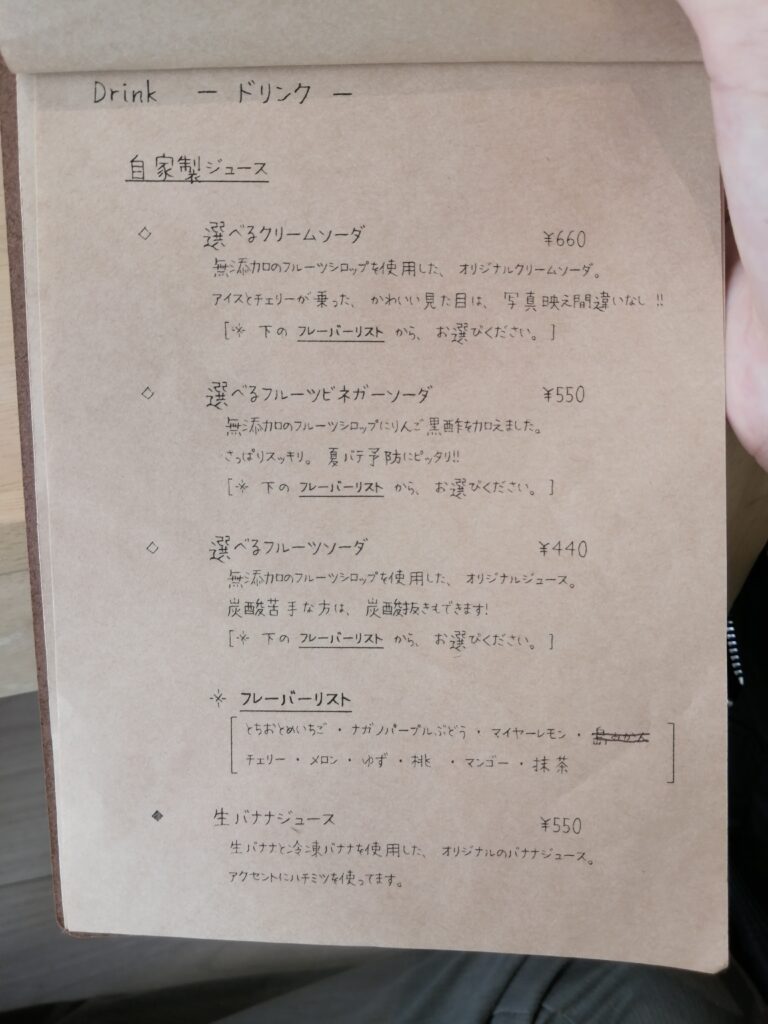 Drink ー ドリンク ー
自家製ジュース
◇ 選べるクリームソーダ ¥660
無添加のフルーツシロップを使用した、オリジナルクリームソーダ。
アイスとチェリーが乗った、かわいい見た目は、写真映え間違いなし!!
[※ 下の フレーバーリスト から、お選びください。]
◇ 選べるフルーツビネガーソーダ ¥550
無添加のフルーツシロップにりんご黒酢を加えました。
さっぱりスッキリ。夏バテ予防にピッタリ!!
[※ 下の フレーバーリスト から、お選びください。]
◇ 選べるフルーツソーダ ¥440
無添加のフルーツシロップを使用した、オリジナルジュース。
炭酸苦手な方は、炭酸抜きもできます!
[※ 下の フレーバーリスト から、お選びください。]
※ フレーバーリスト
[とちおとめいちご・ナガノパープルぶどう・マイヤーレモン・島みかん
チェリー・メロン・ゆず・桃・マンゴー・抹茶]
◆ 生バナナジュース ¥550
生バナナと冷凍バナナを使用した、オリジナルのバナナジュース。
アクセントにハチミツを使ってます。